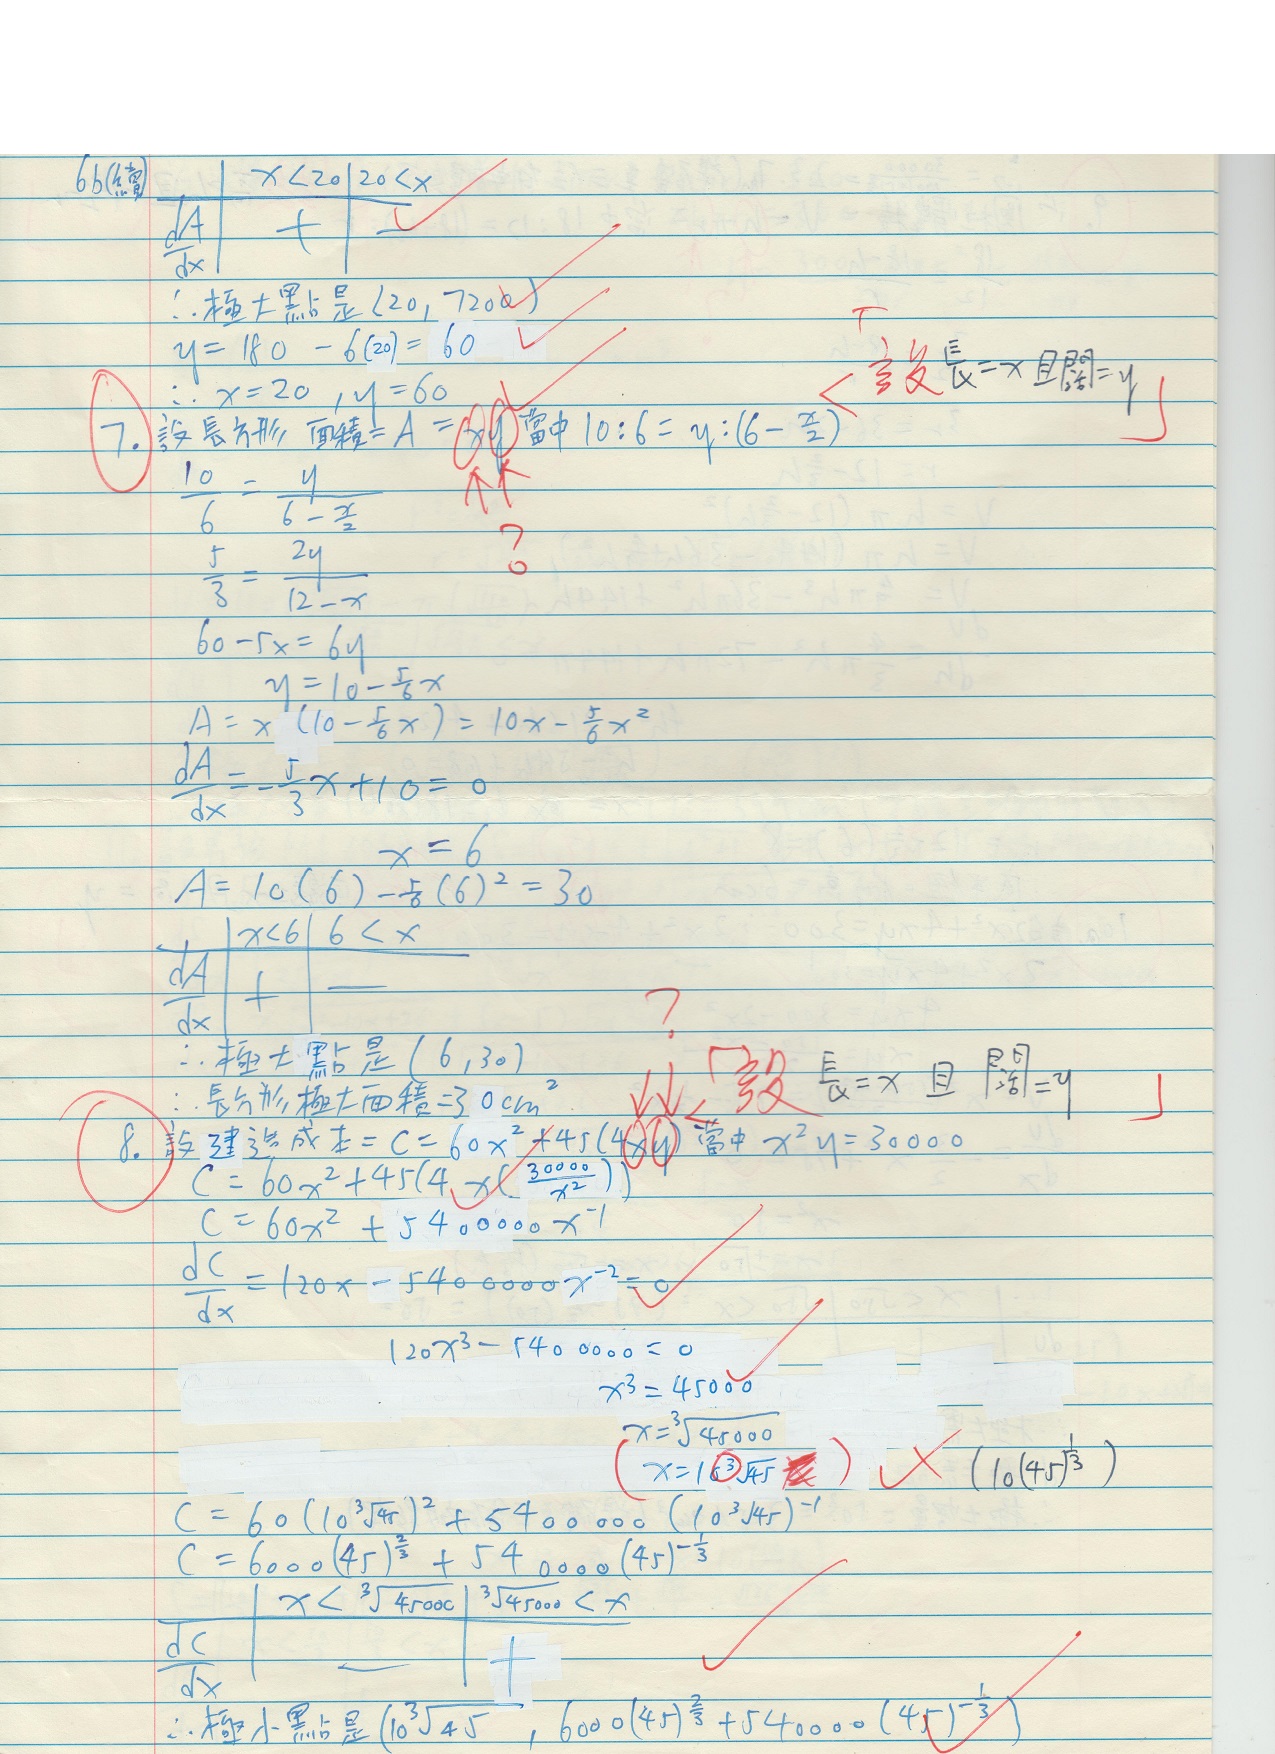 6b(續)
x<20 | 20<x
dA/dx | + | −
∴極大點是(20, 7200)
y = 180 − 6(20) = 60
∴ x=20 , y=60
「設長=x且闊=y」
7. 設長方形面積=A=xy當中10:6=y:(6−x/2)
10/6 = y/(6−x/2)
?
5/3 = 2y/(12−x)
60−5x=6y
y=10−5/6x
A = x(10−5/6x) = 10x−5/6x²
dA/dx = −5/3x+10=0
x=6
A=10(6)−5/6(6)²=30
x<6 | 6<x
dA/dx | + | −
?
∴極大點是(6,30)
「設長=x且闊=y」
∴長方形極大面積=30cm²
8. 設建造成本=C=60x²+45(4xy)當中x²y=30000
C=60x²+45(4x(30000/x²))
C=60x²+5400000x⁻¹
dC/dx = 120x−5400000x⁻²=0
120x³−5400000=0
x³=45000
x=³√45000
(x=10³√45) (10(45)^1/3)
C=60(10³√45)²+5400000(10³√45)⁻¹
C=6000(45)^2/3+540000(45)^−1/3
x<³√45000 | ³√45000<x
dC/dx | − | +
∴極小點是(10³√45, 6000(45)^2/3+540000(45)^−1/3)